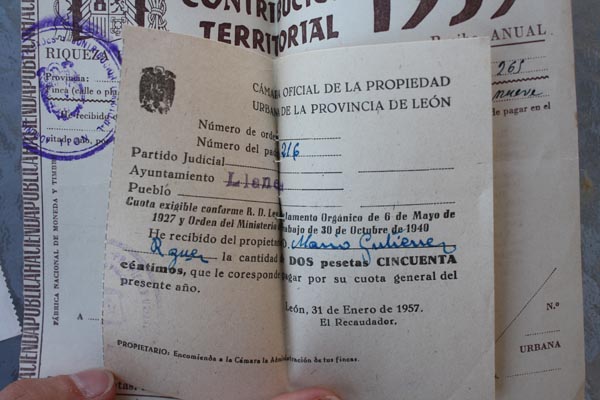 CONTRIBUCIÓN 1959
TERRITORIAL
Recibo ANUAL
RIQUEZ
Provincia:
inca (calle o pla
He recibido
265
nueve
pagar en el
FÁBRICA NACIONAL DE MONEDA Y TIMBRE
HACIENDAPUBLICAHACIENDAPUBLICA
CÁMARA OFICIAL DE LA PROPIEDAD
URBANA DE LA PROVINCIA DE LEÓN
Número de orden
Número del pa 216
Partido Judicial
Ayuntamiento Llama
Pueblo
Cuota exigible conforme R. D. Le lamento Orgánico de 6 de Mayo de
1927 y Orden del Ministerio abajo de 30 de Octubre de 1940
He recibido del propietario D. Mario Gutierrez
la cantidad de DOS pesetas CINCUENTA
céntimos, que le corresponde pagar por su cuota general del
presente año.
León, 31 de Enero de 1957.
El Recaudador.
PROPIETARIO: Encomienda a la Cámara la Administración de tus fincas.
A
N.º
URBANA
etas.